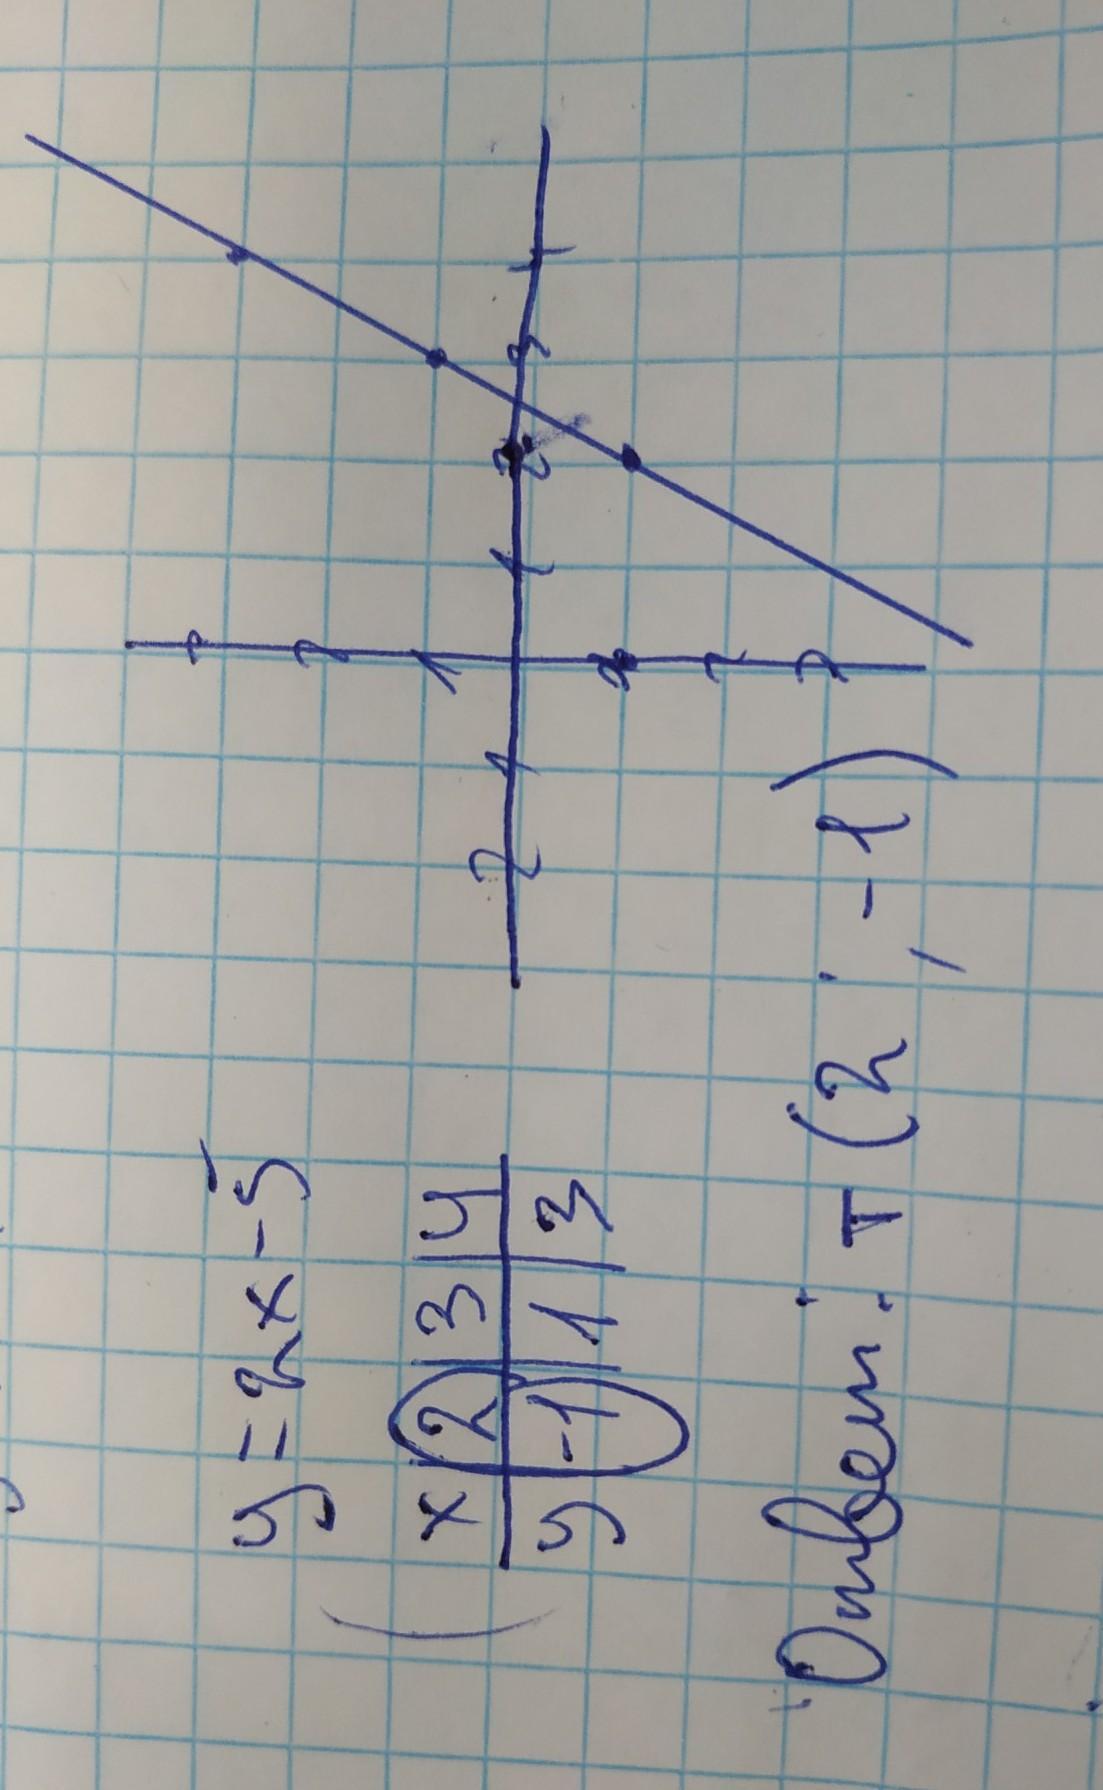 y = 2x - 5
x 2 3 4
y -1 1 3
3
2
1
2 1 1 2 3 4
1
2
3
Ответ: т (2, -1)